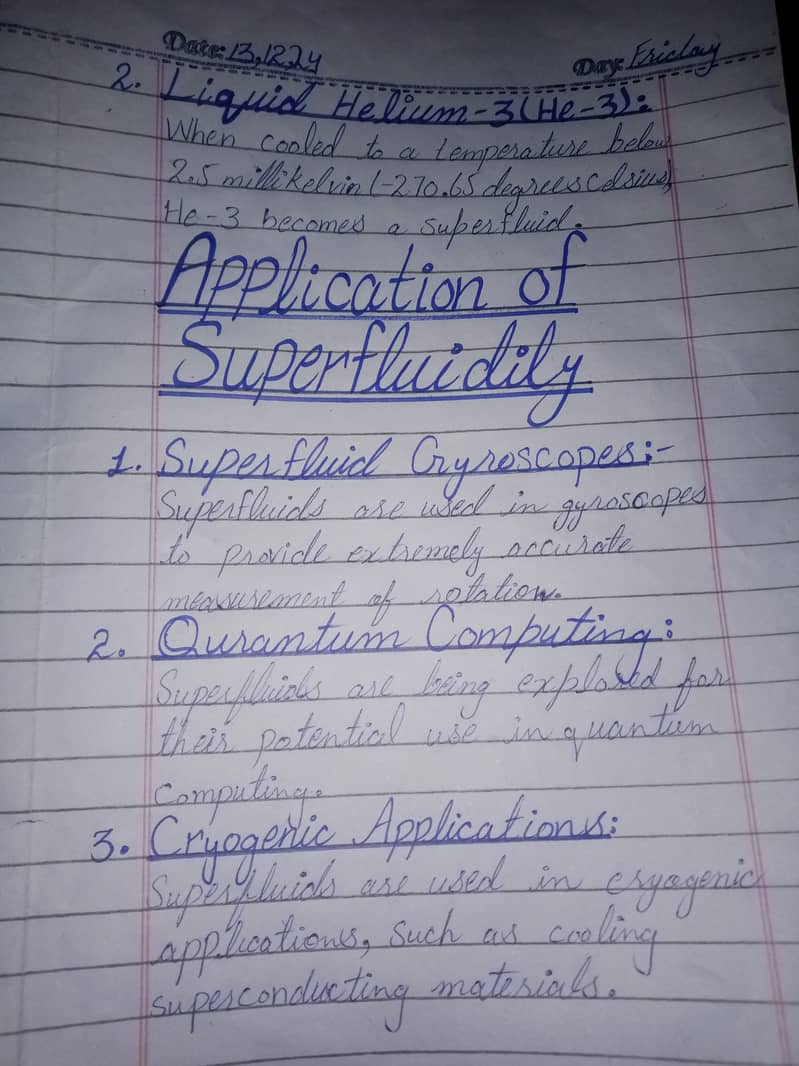 Date: 13.12.24
Day: Friday
2. Liquid Helium-3(He-3):
When cooled to a temperature below
2.5 millikelvin (-270.65 degrees celsius),
He-3 becomes a superfluid.
Application of
Superfluidily
1. Superfluid Gyroscopes:-
Superfluids are used in gyroscopes
to provide extremely accurate
measurement of rotation.
2. Qurantum Computing:
Superfluids are being explored for
their potential use in quantum
Computing.
3. Cryogenic Applications:
Superfluids are used in cryogenic
applications, Such as cooling
superconducting materials.